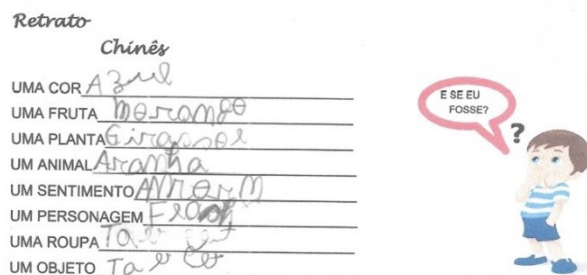 Retrato
Chinês
UMA COR Azul
UMA FRUTA morango
UMA PLANTA Girassol
UM ANIMAL Aranha
UM SENTIMENTO
UM PERSONAGEM
UMA ROUPA
UM OBJETO
E SE EU
FOSSE?
?